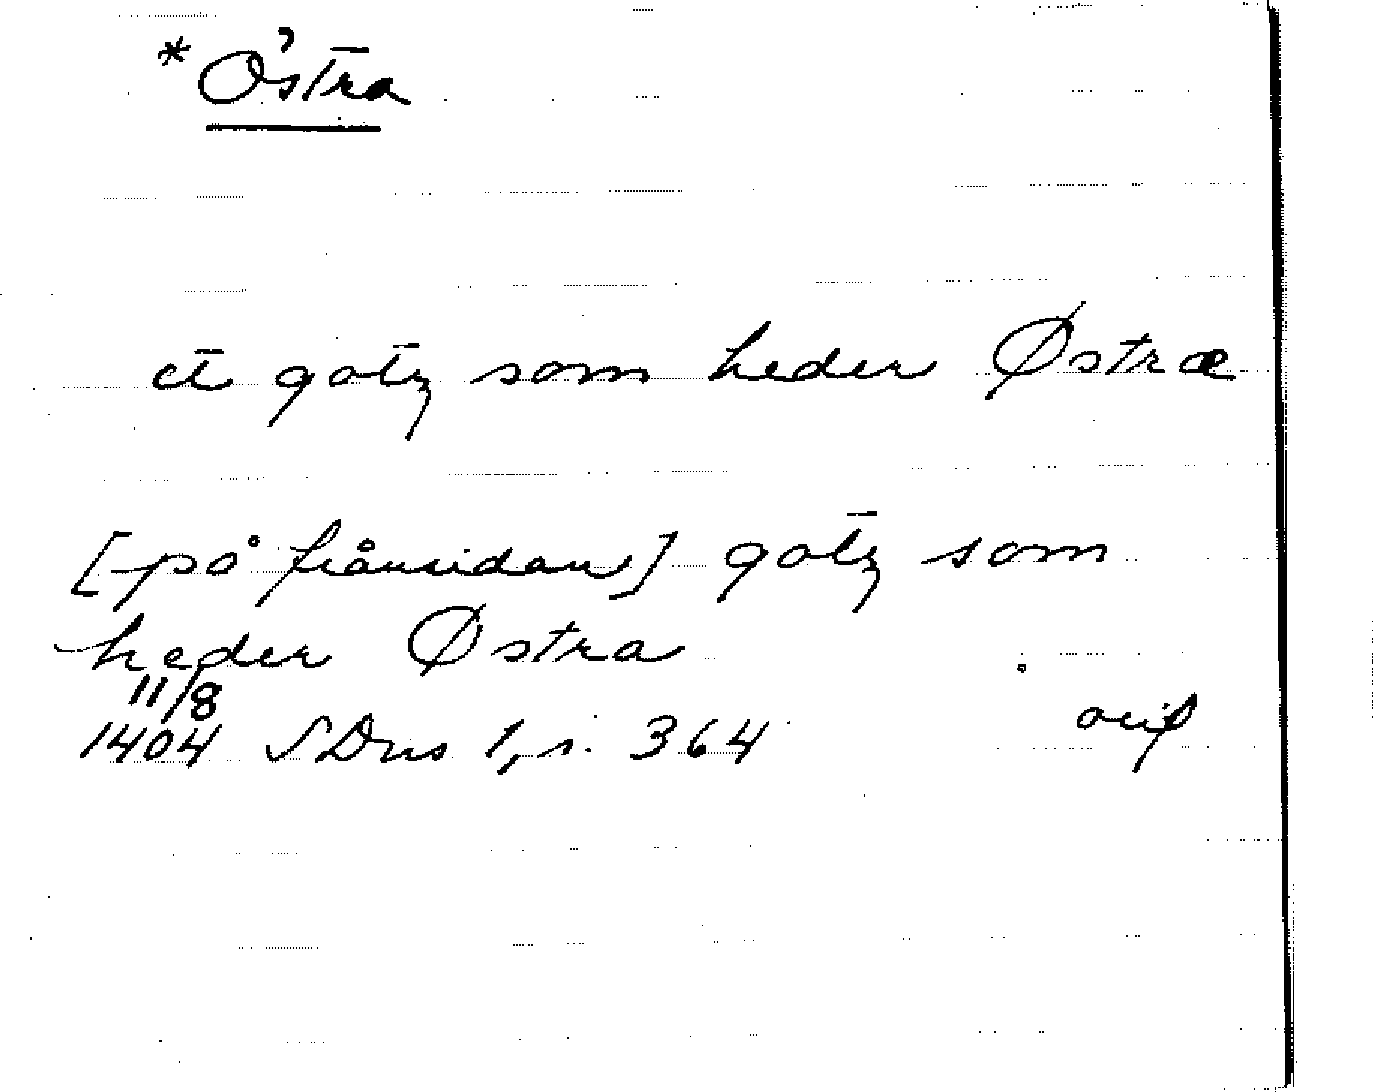 * Östra
et gotz som heder Østræ
[på frånsidan] gotz som
heder Østra
11/8
1404 SDns 1, s. 364 orig